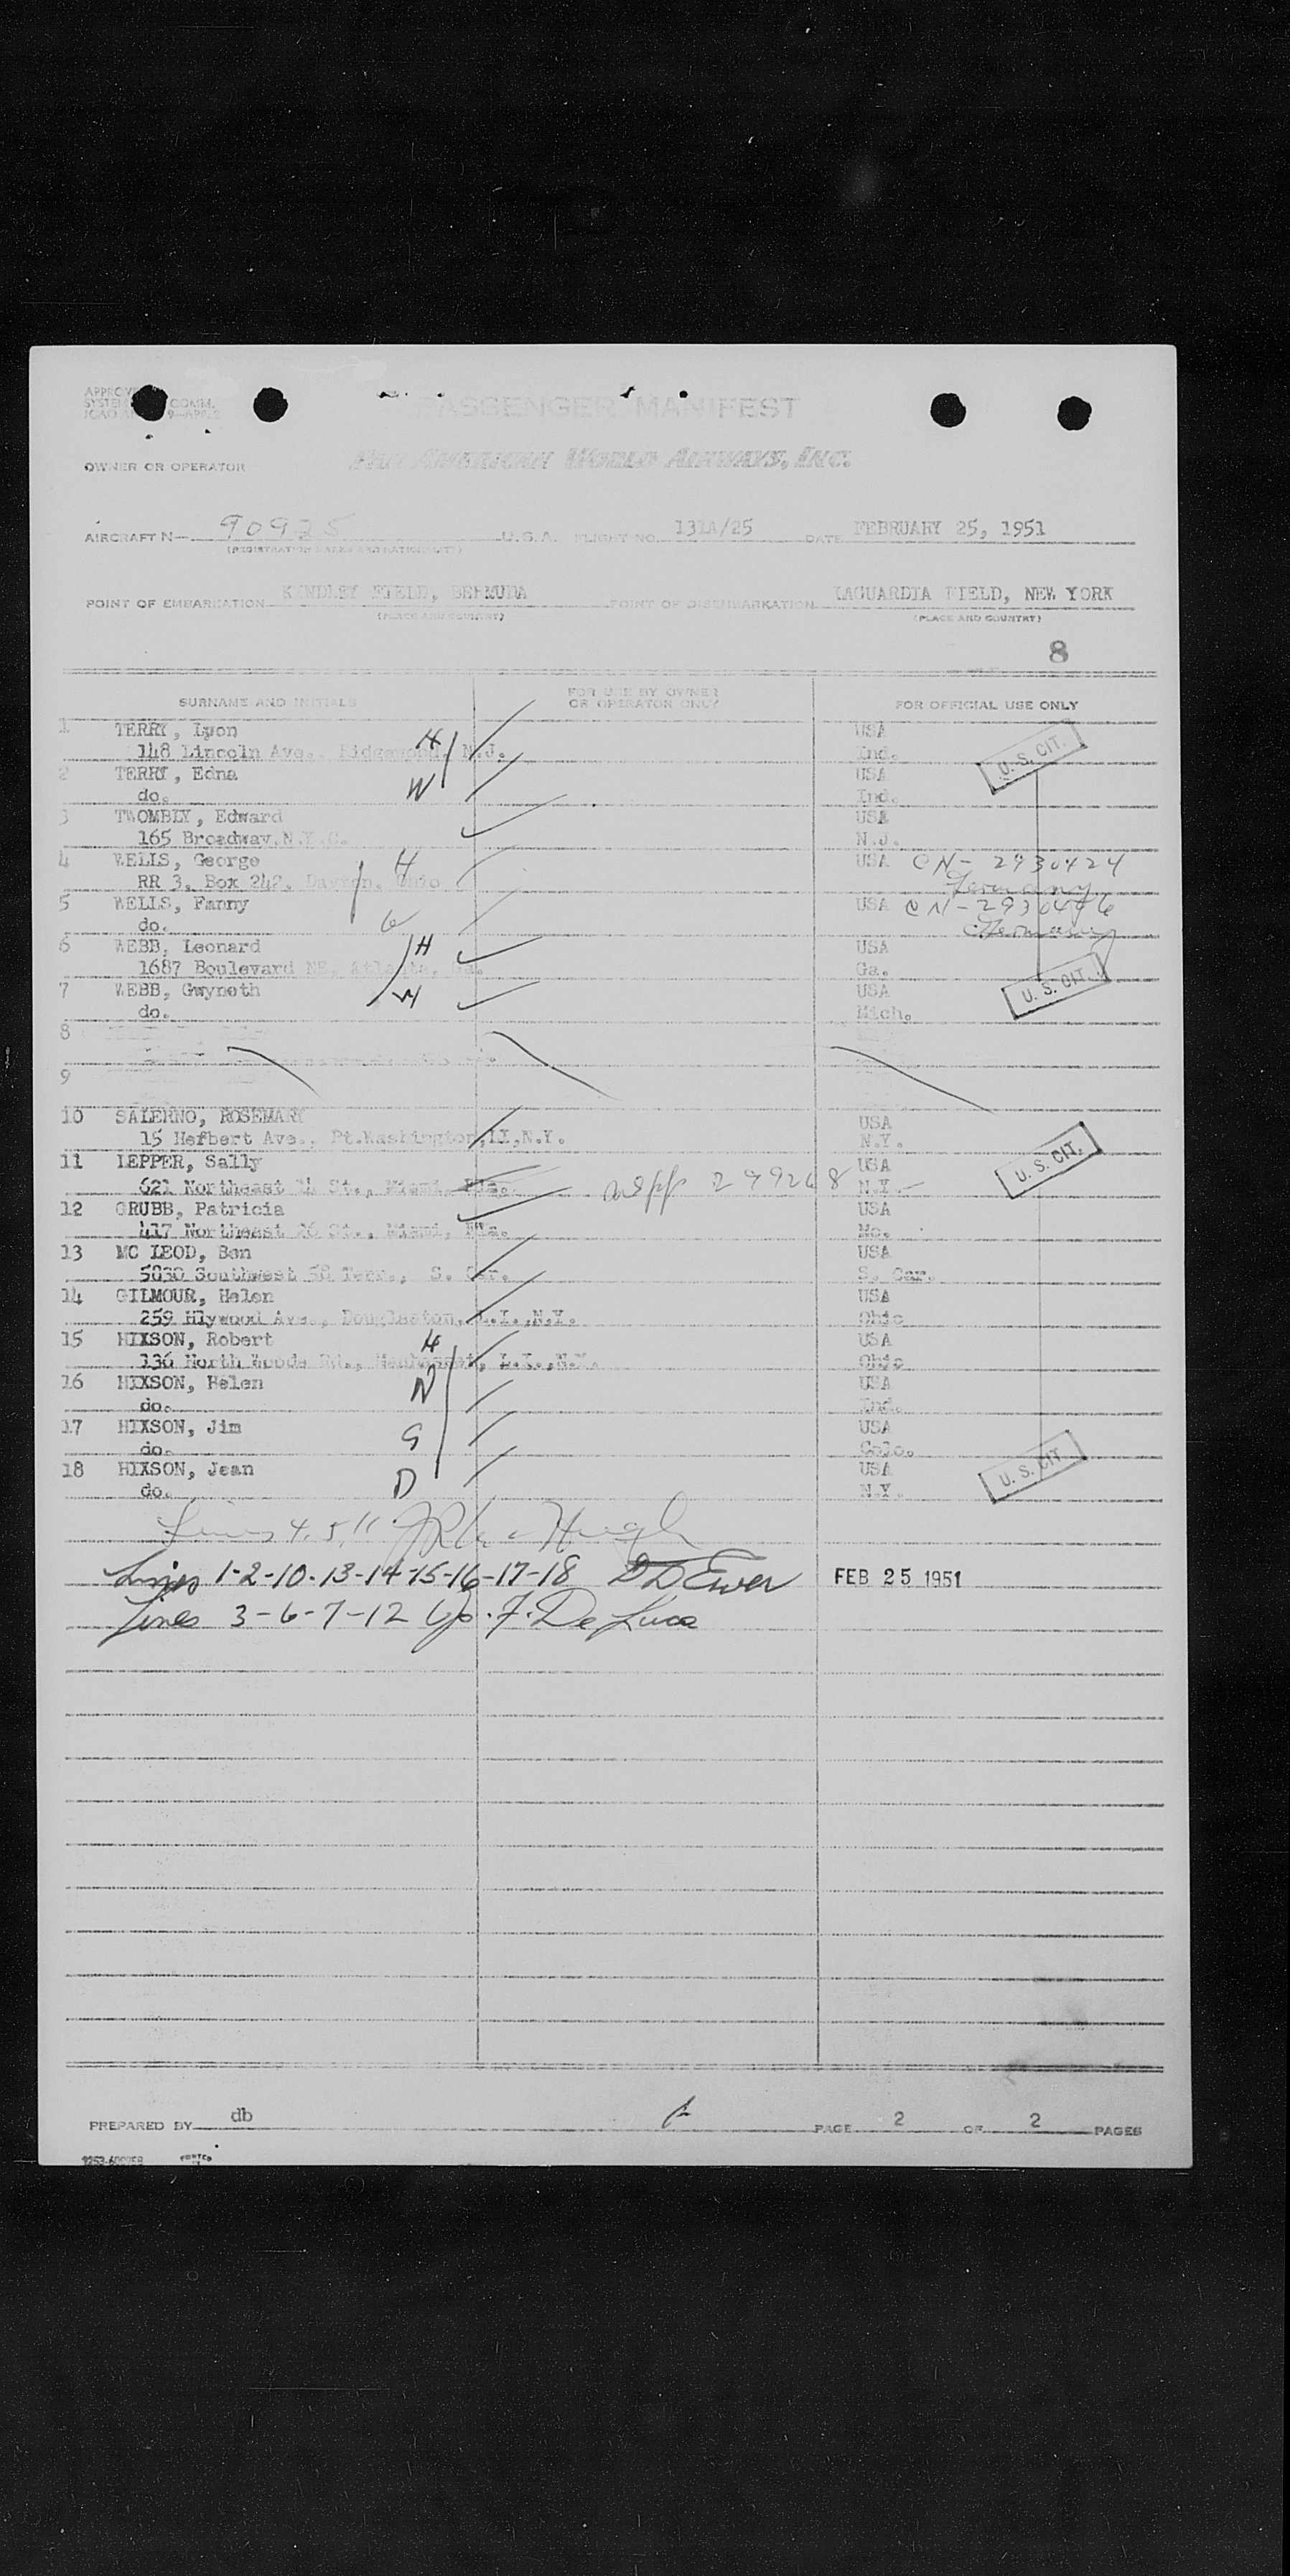 PASSENGER MANIFEST
OWNER OR OPERATOR PAN AMERICAN WORLD AIRWAYS, INC.
AIRCRAFT N— 90925 U.S.A. FLIGHT NO. 131A/25 DATE FEBRUARY 25, 1951
POINT OF EMBARKATION KINDLEY FIELD, BERMUDA POINT OF DISEMBARKATION LAGUARDIA FIELD, NEW YORK
(PLACE AND COUNTRY) (PLACE AND COUNTRY)
8
SURNAME AND INITIALS FOR USE BY OWNER OR OPERATOR ONLY FOR OFFICIAL USE ONLY
1 TERRY, Lyon USA
148 Lincoln Ave., Ridgewood, N.J. H Ind. U. S. CIT.
2 TERRY, Edna USA
do. W Ind.
3 TWOMBLY, Edward USA
165 Broadway, N.Y.C. N.J.
4 WELLS, George H USA CN- 2930424
RR 3, Box 242, Dayton, Ohio Germany
5 WELLS, Fanny USA CN-2930446
do. Germany
6 WEBB, Leonard H USA
1687 Boulevard NE, Atlanta, Ga. Ga.
7 WEBB, Gwyneth W USA U. S. CIT.
do. Mich.
8
9
10 SALERNO, ROSEMARY USA
15 Herbert Ave., Pt.Washington,LI,N.Y. N.Y.
11 LEPPER, Sally USA U. S. CIT.
621 Northeast St., Miami, Fla. uspp 299268 N.Y.
12 GRUBB, Patricia USA
417 Northeast 26 St., Miami, Fla. Mo.
13 MC LEOD, Ben USA
5830 Southwest 58 Terr., S. Car. S. Car.
14 GILMOUR, Helen USA
259 Hlywood Ave., Douglaston, L.I.,N.Y. Ohio
15 HIXSON, Robert H USA
136 North Woods Rd., Manhasset, L.I.,N.Y. Ohio
16 HIXSON, Helen W USA
do. Ind.
17 HIXSON, Jim S USA
do. Colo.
18 HIXSON, Jean D USA U. S. CIT.
do. N.Y.
Lines 4, 5, 11
Lines 1-2-10-13-14-15-16-17-18 D D Ewer FEB 25 1951
Lines 3-6-7-12 F. De Luca
PREPARED BY db PAGE 2 OF 2 PAGES